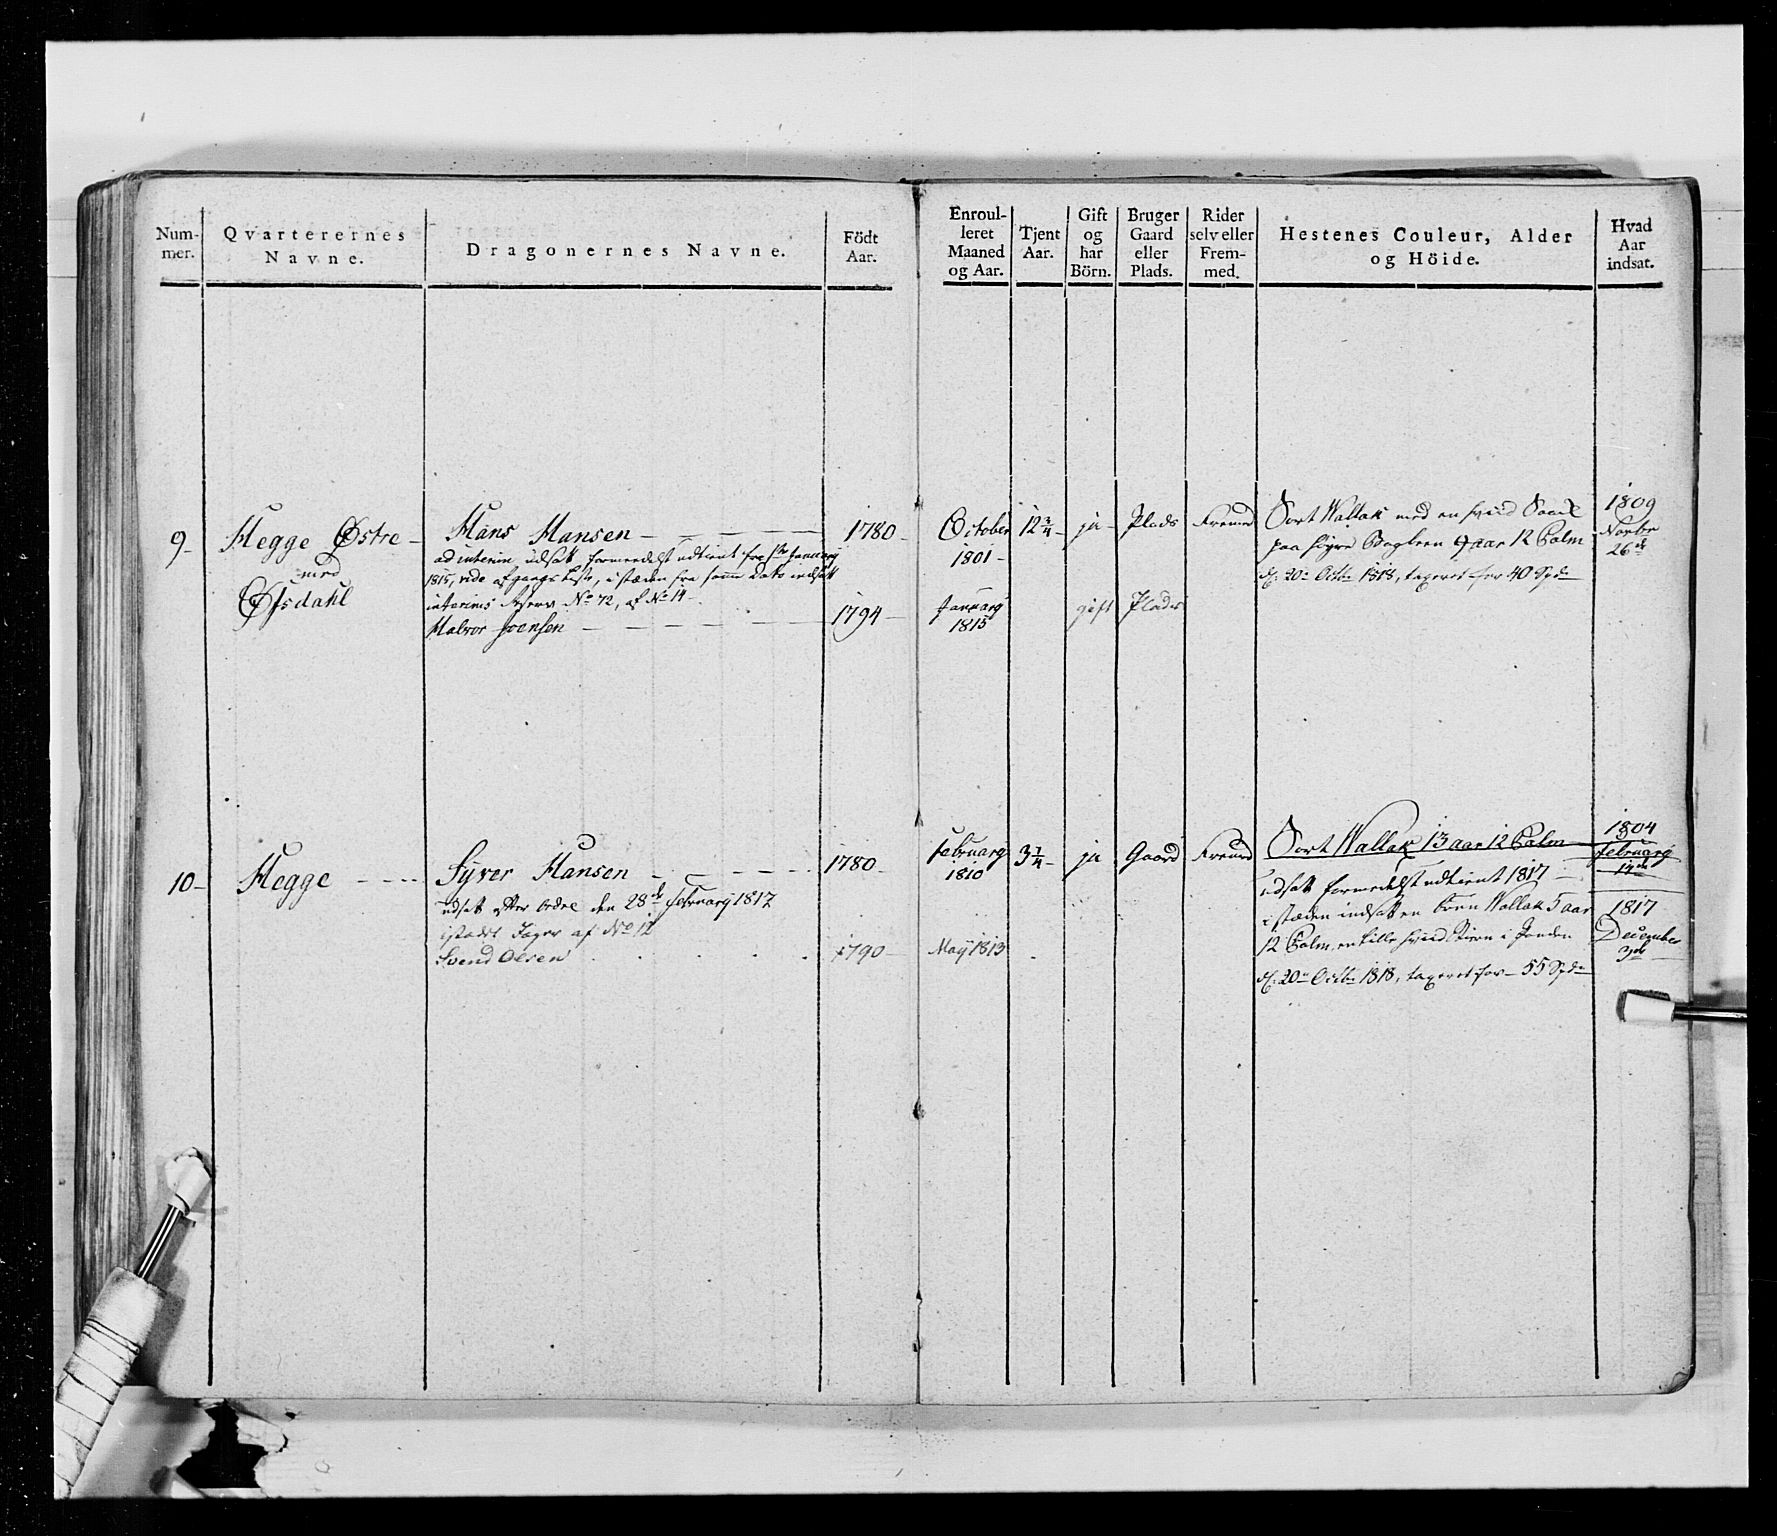 Num-
mer.
Qvarterernes
Navne.
Dragonernes Navne.
Födt
Aar.
Enroul-
leret
Maaned
og Aar.
Tjent
Aar.
Gift
og
har
Börn.
Bruger
Gaard
eller
Plads.
Rider
selv eller
Frem-
med.
Hestenes Couleur, Alder
og Höide.
Hvad
Aar
indsat.
9-
Hegge Østre -
med
Øfsdahl
Hans Hansen
ad interim udsatt formedelst udtient fra 1ste Januarij
1815, vide afgangs Liste, i stæden fra samme Dato indsatt
interims Reserv No 72, af No 14
Halvor Svensen
1780-
1794-
October
1801-
Januarij
1815
12 3/4-
ja-
gift
Plads
Plads
Fremed
Sort Wallak med en hvid
paa høyre Bagbeen 9 aar 12 Palm
d: 20de Octbr 1818, taxeret for 40 Spd
1809
Novbr
26de
10-
Hegge
Syver Hansen
udsatt efter Ordre den 28de Februarij 1817
istædet Jæger af No 12
Svend Olsen
1780
1790-
Februarij
1810
May 1813
3 1/4-
ja
Gaard
Fremed
Sort Wallak 13 aar 12 Palm
udsatt formedelst udtient 1817
i stæden indsatt en brun Wallak 5 aar
12 Palm, en lille hvid Stiern i Panden
d: 20de Octbr 1818, taxeret for 55 Spd
1804
Februarij
1817
December
3de